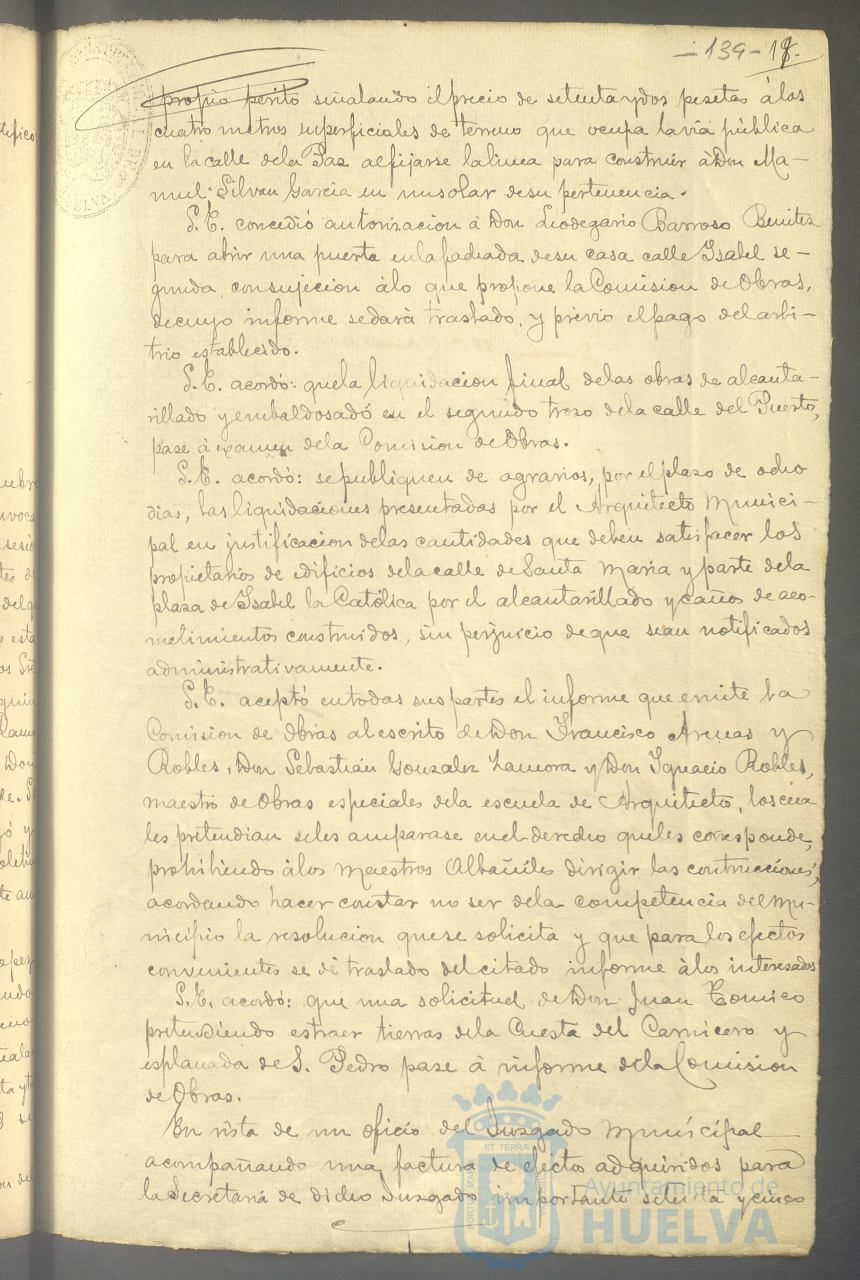 -139-18.
propio perito señalando el precio de setenta y dos pesetas á los
cuatro metros superficiales de terreno que ocupa la via pública
en la calle de la Paz al fijarse la linea para construir á Don Ma-
nuel Silvan Garcia en un solar de su pertenencia.
S.E. concedió autorizacion á Don Leodegario Barroso Benitez
para abrir una puerta en la fachada de su casa calle Isabel se-
gunda, con sujecion á lo que propone la Comision de Obras,
de cuyo informe se dará traslado, y previo el pago del arbi-
trio establecido.
S.E. acordó: que la liquidacion final de las obras de alcanta-
rillado y embaldosadó en el segundo trozo de la calle del Puerto,
pase á examen de la Comision de Obras.
S.E. acordó: se publiquen de agravios, por el plazo de ocho
dias, las liquidaciones presentadas por el Arquitecto Munici-
pal en justificacion de las cantidades que deben satisfacer los
propietarios de edificios de la calle de Santa Maria y parte de la
plaza de Isabel la Católica por el alcantarillado y caños de aco-
metimientos construidos, sin perjuicio de que sean notificados
administrativamente.
S.E. aceptó en todas sus partes el informe que emite la
Comision de Obras al escrito de Don Francisco Arenas y
Robles, Don Sebastián Gonzalez Zamora y Don Ignacio Robles,
maestro de Obras especiales de la escuela de Arquitecto, los cua
les pretendian se les amparase en el derecho que les corresponde,
prohibiendo á los Maestros Albañiles dirigir las contrucciones,
acordando hacer constar no ser de la competencia del Mu-
nicipio la resolucion que se solicita y que para los efectos
convenientes se dé traslado del citado informe á los interesados
S.E. acordó: que una solicitud de Don Juan
pretendiendo estraer tierras de la Cuesta del Carnicero y
esplanada de S. Pedro pase á informe de la Comision
de Obras.
En vista de un oficio del Juzgado Municipal
acompañando una factura de efecto adquiridos para
la Secretaría de dicho Juzgado importante setenta y cinco
ET TERRÆ
Ayuntamiento de
HUELVA